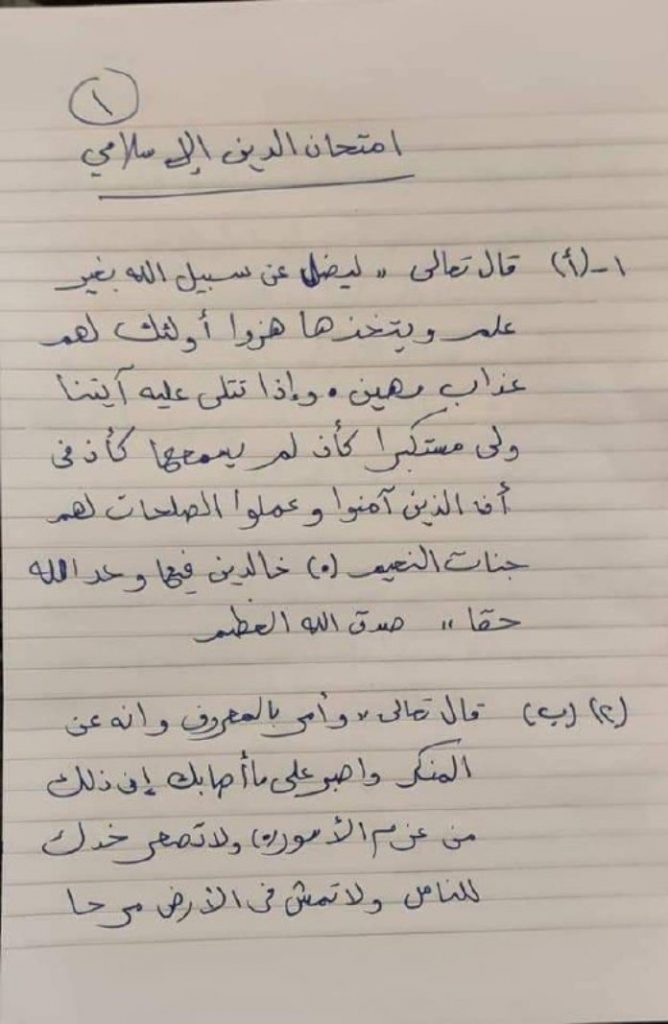 ١
امتحان الدين الإسلامي
١-(أ) قال تعالى "ليضل عن سبيل الله بغير
علم ويتخذها هزوا أولئك لهم
عذاب مهين . وإذا تتلى عليه آيتنا
ولى مستكبرا كأن لم يسمعها كأن فى
أن الذين آمنوا وعملوا الصلحات لهم
جنات النعيم (٥) خالدين فيها وعد الله
حقا" صدق الله العظيم
(٢) (ب) قال تعالى "وأمر بالمعروف وانه عن
المنكر واصبر على ما أصابك إن ذلك
من عزم الأمور(٥) ولا تصعر خدك
للناس ولا تمش فى الأرض مرحا